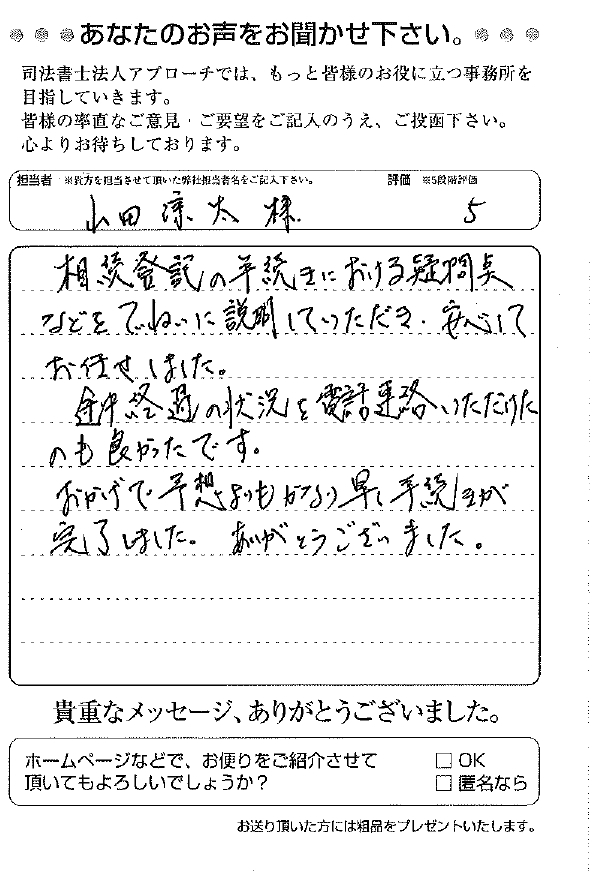 あなたのお声をお聞かせ下さい。
司法書士法人アプローチでは、もっと皆様のお役に立つ事務所を
目指していきます。
皆様の率直なご意見・ご要望をご記入のうえ、ご投函下さい。
心よりお待ちしております。
担当者 ※貴方を担当させて頂いた弊社担当者名をご記入下さい。 評価 ※5段階評価
山田 涼太 様 5
相続登記の手続きにおける疑問点
などをていねいに説明していただき、安心して
お任せしました。
途中経過の状況を電話連絡いただけた
のも良かったです。
おかげで予想よりもかなり早く手続きが
完了しました。 ありがとうございました。
貴重なメッセージ、ありがとうございました。
ホームページなどで、お便りをご紹介させて
頂いてもよろしいでしょうか?
□ OK
□ 匿名なら
お送り頂いた方には粗品をプレゼントいたします。